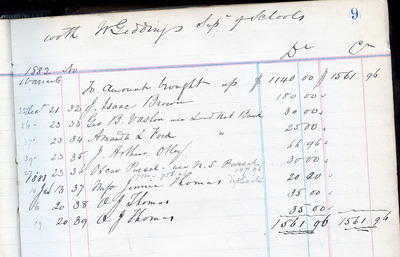 9
with W Geddings Sup. of Schools
Dr Cr
1882 No
Warrants
To Amount brought up $ 1140 00 $ 1561 96
Dec 21 32 J. Isaac Brown 180 00
23 33 Geo B. 30 00
23 34 Amanda L York " 25 00
23 35 J. Arthur 66 96
23 36 Oscar 30 00
1883
Jan 13 37 Miss Jennie Thomas 20 00
20 38 O J Thomas 35 00
19 20 39 O J Thomas 35 00
1561 96 1561 96